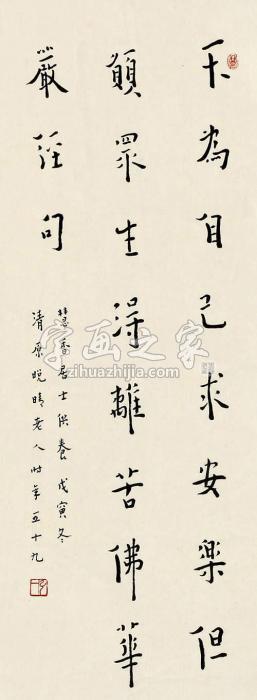 不為自己求安樂但
願眾生得離苦佛華
嚴經句
慧香居士供養戊寅冬
清原晚晴老人時年五十九
字画之家
zihuazhijia.com